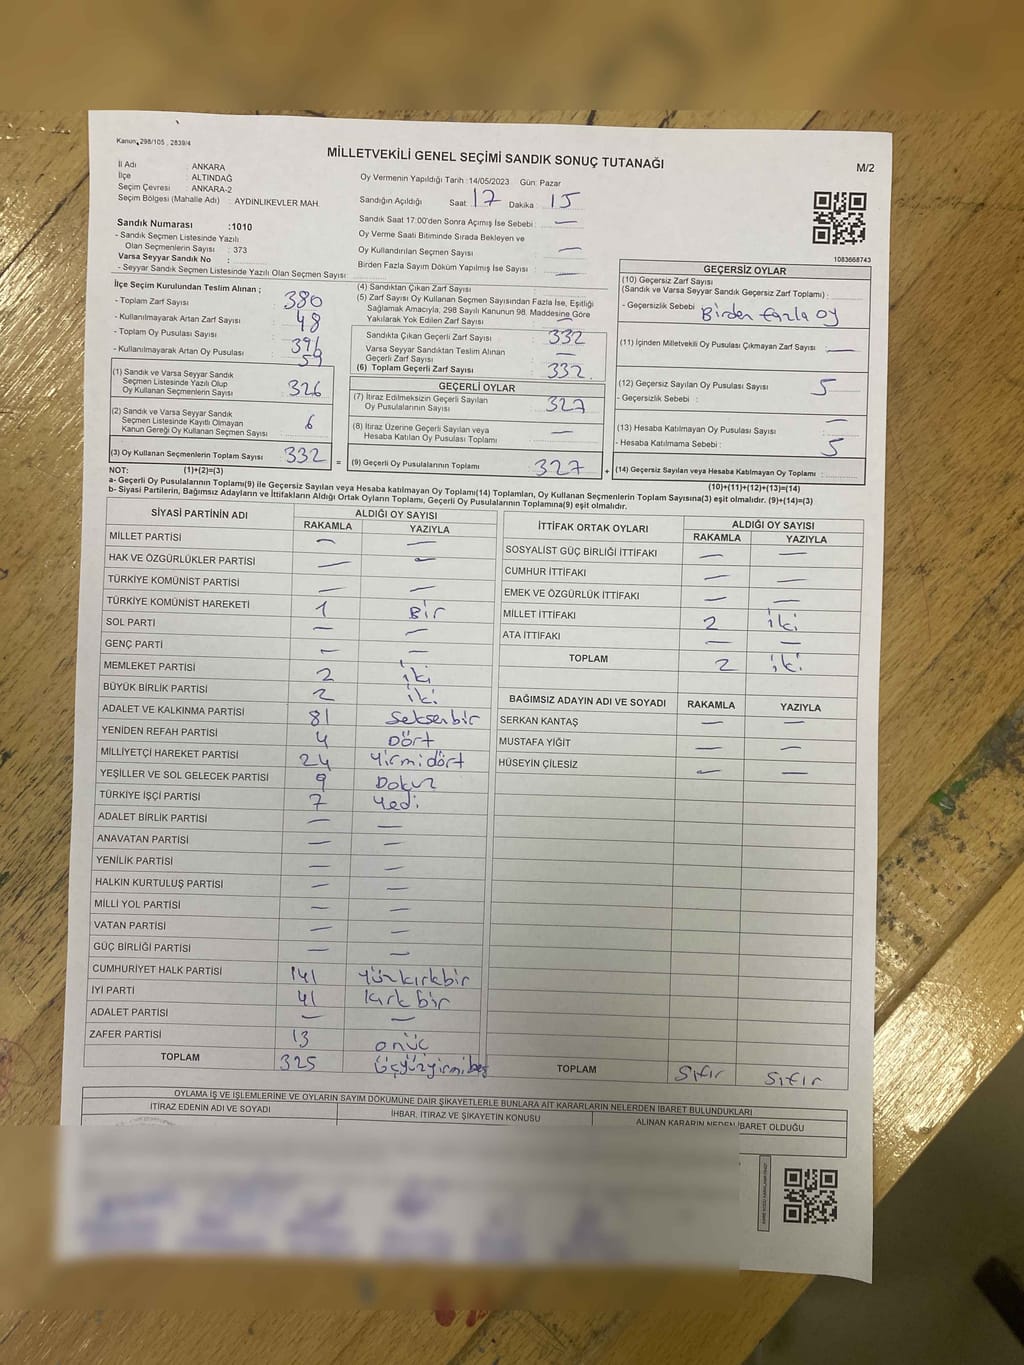 Kanun, 298/105 , 2839/4
MİLLETVEKİLİ GENEL SEÇİMİ SANDIK SONUÇ TUTANAĞI
M/2
İl Adı : ANKARA
İlçe : ALTINDAĞ
Seçim Çevresi : ANKARA-2
Seçim Bölgesi (Mahalle Adı) : AYDINLIKEVLER MAH.
Sandık Numarası :1010
- Sandık Seçmen Listesinde Yazılı
Olan Seçmenlerin Sayısı : 373
Varsa Seyyar Sandık No :
- Seyyar Sandık Seçmen Listesinde Yazılı Olan Seçmen Sayısı:
Oy Vermenin Yapıldığı Tarih : 14/05/2023 Gün: Pazar
Sandığın Açıldığı Saat 17 Dakika 15
Sandık Saat 17:00'den Sonra Açımış İse Sebebi : —
Oy Verme Saati Bitiminde Sırada Bekleyen ve
Oy Kullandırılan Seçmen Sayısı —
Birden Fazla Sayım Döküm Yapılmış İse Sayısı —
1083668743
İlçe Seçim Kurulundan Teslim Alınan ;
- Toplam Zarf Sayısı 380
- Kullanılmayarak Artan Zarf Sayısı 48
- Toplam Oy Pusulası Sayısı 391
- Kullanılmayarak Artan Oy Pusulası 59
(1) Sandık ve Varsa Seyyar Sandık
Seçmen Listesinde Yazılı Olup
Oy Kullanan Seçmenlerin Sayısı 326
(2) Sandık ve Varsa Seyyar Sandık
Seçmen Listesinde Kayıtlı Olmayan
Kanun Gereği Oy Kullanan Seçmen Sayısı 6
(3) Oy Kullanan Seçmenlerin Toplam Sayısı 332 =
(4) Sandıktan Çıkan Zarf Sayısı :
(5) Zarf Sayısı Oy Kullanan Seçmen Sayısından Fazla İse, Eşitliği
Sağlamak Amacıyla, 298 Sayılı Kanunun 98. Maddesine Göre
Yakılarak Yok Edilen Zarf Sayısı :
Sandıkta Çıkan Geçerli Zarf Sayısı 332
Varsa Seyyar Sandıktan Teslim Alınan
Geçerli Zarf Sayısı —
(6) Toplam Geçerli Zarf Sayısı 332
GEÇERLİ OYLAR
(7) İtiraz Edilmeksizin Geçerli Sayılan
Oy Pusulalarının Sayısı 327
(8) İtiraz Üzerine Geçerli Sayılan veya
Hesaba Katılan Oy Pusulası Toplamı —
(9) Geçerli Oy Pusulalarının Toplamı 327 +
GEÇERSİZ OYLAR
(10) Geçersiz Zarf Sayısı
(Sandık ve Varsa Seyyar Sandık Geçersiz Zarf Toplamı) :
- Geçersizlik Sebebi Birden fazla oy
(11) İçinden Milletvekili Oy Pusulası Çıkmayan Zarf Sayısı : —
(12) Geçersiz Sayılan Oy Pusulası Sayısı 5
- Geçersizlik Sebebi :
(13) Hesaba Katılmayan Oy Pusulası Sayısı —
- Hesaba Katılmama Sebebi : 5
(14) Geçersiz Sayılan veya Hesaba Katılmayan Oy Toplamı :
NOT: (1)+(2)=(3)
(10)+(11)+(12)+(13)=(14)
a- Geçerli Oy Pusulalarının Toplamı(9) ile Geçersiz Sayılan veya Hesaba katılmayan Oy Toplamı(14) Toplamları, Oy Kullanan Seçmenlerin Toplam Sayısına(3) eşit olmalıdır. (9)+(14)=(3)
b- Siyasi Partilerin, Bağımsız Adayların ve İttifakların Aldığı Ortak Oyların Toplamı, Geçerli Oy Pusulalarının Toplamına(9) eşit olmalıdır.
SİYASİ PARTİNİN ADI ALDIĞI OY SAYISI
RAKAMLA YAZIYLA
MİLLET PARTİSİ — —
HAK VE ÖZGÜRLÜKLER PARTİSİ — —
TÜRKİYE KOMÜNİST PARTİSİ — —
TÜRKİYE KOMÜNİST HAREKETİ 1 Bir
SOL PARTİ — —
GENÇ PARTİ — —
MEMLEKET PARTİSİ 2 iki
BÜYÜK BİRLİK PARTİSİ 2 iki
ADALET VE KALKINMA PARTİSİ 81 Seksenbir
YENİDEN REFAH PARTİSİ 4 Dört
MİLLİYETÇİ HAREKET PARTİSİ 24 Yirmidört
YEŞİLLER VE SOL GELECEK PARTİSİ 9 Dokuz
TÜRKİYE İŞÇİ PARTİSİ 7 Yedi
ADALET BİRLİK PARTİSİ — —
ANAVATAN PARTİSİ — —
YENİLİK PARTİSİ — —
HALKIN KURTULUŞ PARTİSİ — —
MİLLİ YOL PARTİSİ — —
VATAN PARTİSİ — —
GÜÇ BİRLİĞİ PARTİSİ — —
CUMHURİYET HALK PARTİSİ 141 Yüzkırkbir
İYİ PARTİ 41 kırk bir
ADALET PARTİSİ — —
ZAFER PARTİSİ 13 onüç
TOPLAM 325 Üçyüzyirmibeş
İTTİFAK ORTAK OYLARI ALDIĞI OY SAYISI
RAKAMLA YAZIYLA
SOSYALİST GÜÇ BİRLİĞİ İTTİFAKI — —
CUMHUR İTTİFAKI — —
EMEK VE ÖZGÜRLÜK İTTİFAKI — —
MİLLET İTTİFAKI 2 iki
ATA İTTİFAKI — —
TOPLAM 2 iki
BAĞIMSIZ ADAYIN ADI VE SOYADI RAKAMLA YAZIYLA
SERKAN KANTAŞ — —
MUSTAFA YİĞİT — —
HÜSEYİN ÇİLESİZ — —
TOPLAM Sıfır Sıfır
OYLAMA İŞ VE İŞLEMLERİNE VE OYLARIN SAYIM DÖKÜMÜNE DAİR ŞİKAYETLERLE BUNLARA AİT KARARLARIN NELERDEN İBARET BULUNDUKLARI
İTİRAZ EDENİN ADI VE SOYADI
İHBAR, İTİRAZ VE ŞİKAYETİN KONUSU
ALINAN KARARIN NEDEN İBARET OLDUĞU